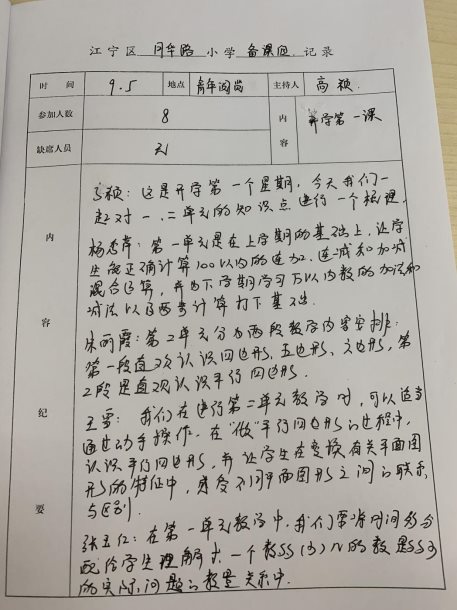 江宁区 月华路 小学 备课组 记录
时间 9.5 地点 青年阅览 主持人 高颖
参加人数 8 内容 开学第一课
缺席人员 无
内容纪要
高颖：这是开学第一个星期，今天我们一
起对一、二单元的知识点进行一个梳理。
杨秀芹：第一单元是在上学期的基础上，让学
生能正确计算100以内的连加、连减和加减
混合运算，并为下学期学习万以内数的加法和
减法以及两步计算打下基础。
宋丽霞：第2单元分为两段教学内容安排：
第一段直观认识四边形、五边形、六边形，第
2段是直观认识平行四边形。
王雪：我们在进行第二单元教学时，可以适当
通过动手操作，在“做”平行四边形的过程中，
认识平行四边形，并让学生在变换有关平面图
形的特征中，感受不同平面图形之间的联系
与区别。
张玉仁：在第一单元教学中，我们要将时间多分
配给学生理解求一个数
的实际问题的数量关系中.